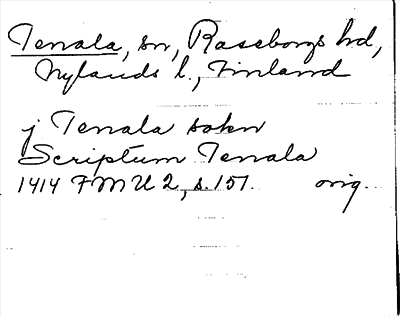 Tenala, sn, Raseborgs hd,
Nylands l., Finland
j Tenala sokn
Scriptum Tenala
1414 FMU 2, s. 151. orig.